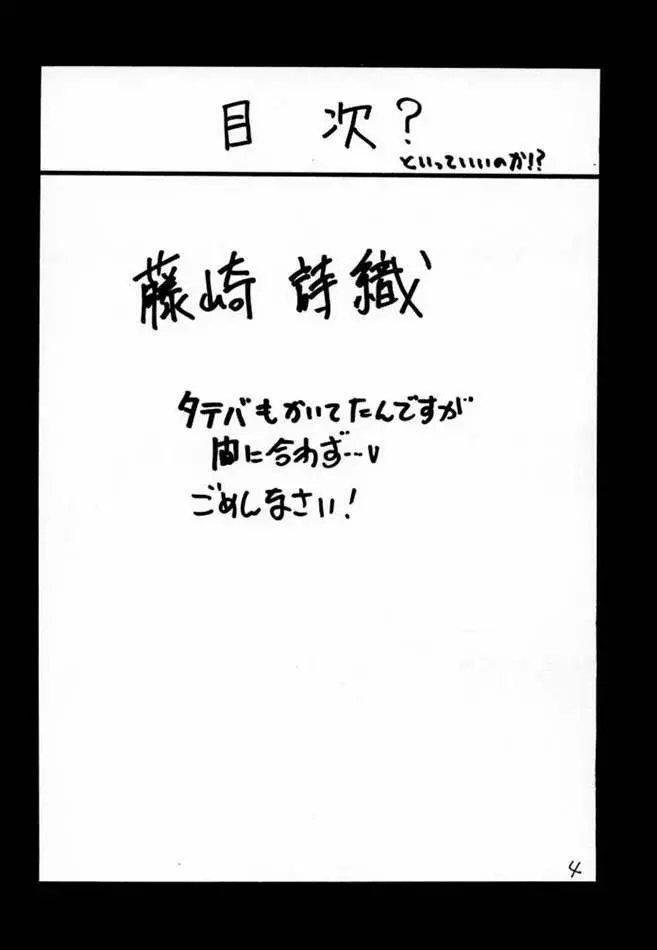 目 次?
といっていいのか!?
藤崎 詩織
タテバもかいてたんですが
間に合わず…v
ごめんなさい!
4